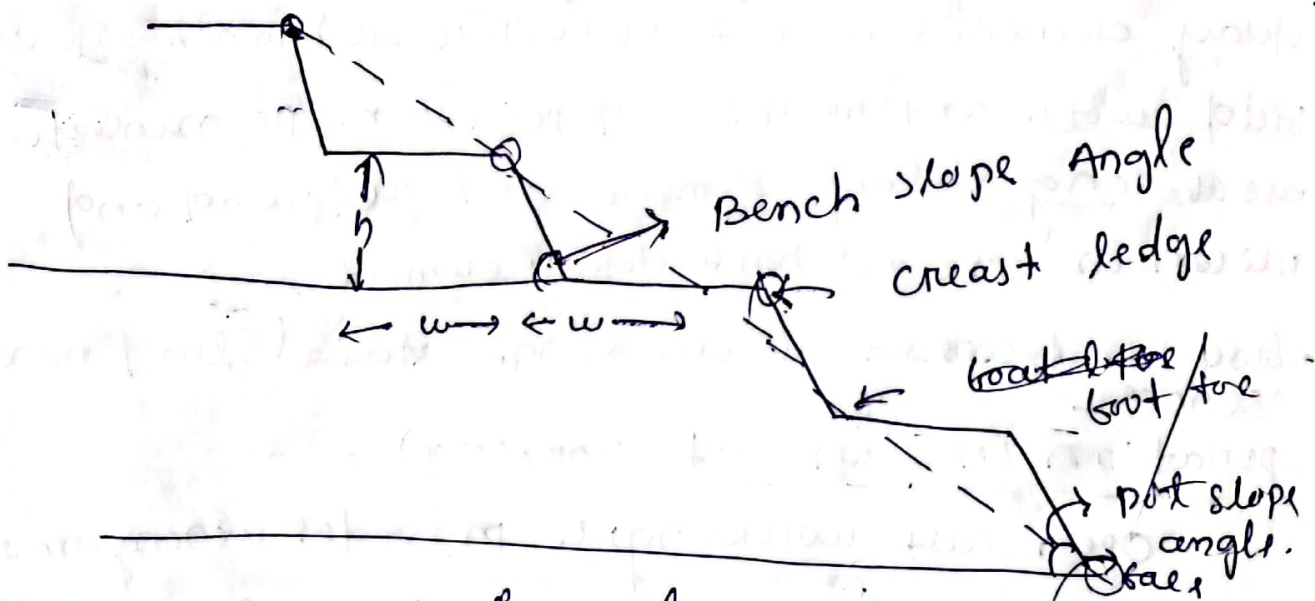 Bench slope Angle
h
creast ledge
w w
foot / toe
slope
angle.